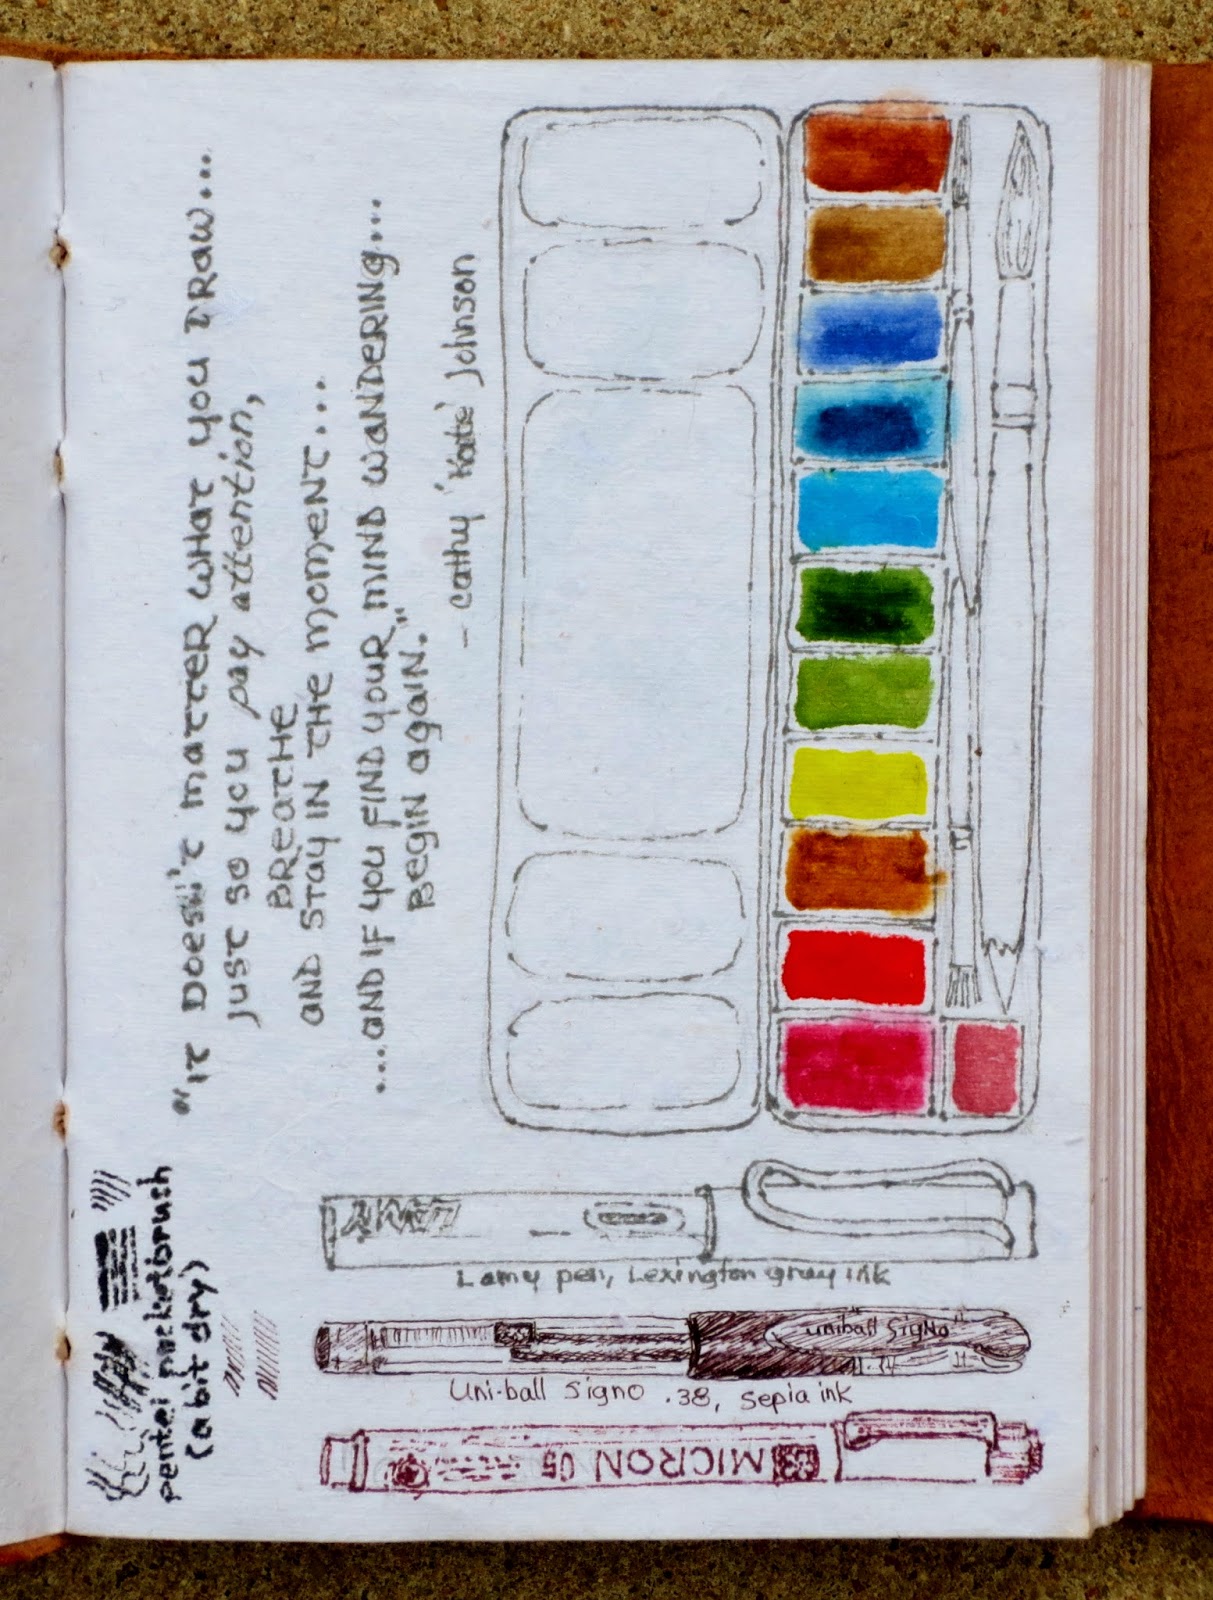 "It Doesn't matter what you draw...
just so you pay attention,
Breathe
and stay in the moment...
...and if you find your mind wandering...
Begin again."
- cathy 'Kate' Johnson
pentel pocketbrush
(a bit dry)
LAMY
Lamy pen, Lexington gray ink
uniball SigNo
Uni-ball Signo .38, sepia ink
MICRON 05